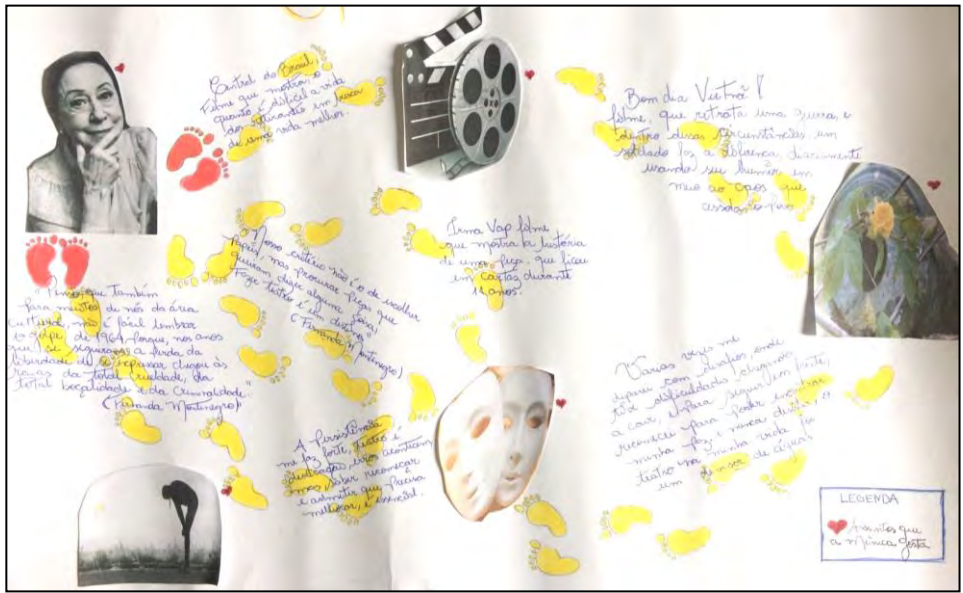 Central do Brasil,
Filme que mostra o
quanto é difícil a vida
dos retirantes em busca
de uma vida melhor.
Bom dia Vietnã!
filme, que retrata uma guerra, e
dentro dessas circunstâncias um
soldado faz a diferença, diariamente
usando seu humor em
meio ao caos que
assola
Irma Vap filme
que mostra a história
de uma peça, que ficou
em cartaz durante
11 anos.
Nosso critério não é o de escolher
papéis, mas procurar peças que
queiram dizer alguma coisa,
Fazer teatro é um destino"
(Fernanda Montenegro)
que também
para muitos de nós da área
cultural, não é fácil lembrar
o golpe de 1964, porque, nos anos
que se seguiram a perda da
liberdade de se expressar chegou às
raias da total crueldade, da
total boçalidade e da criminalidade"
(Fernanda Montenegro)
A persistência
me faz forte, teatro é
dedicação, erros acontecem
mas saber reconhecer
e admitir que precisa
melhorar, é essencial.
Várias vezes me
deparei com desafios, onde
tive dificuldades chegando
a cair, e para seguir em frente,
reconheci para poder encontrar
minha paz, e nunca desistir. O
teatro na minha vida foi
um divisor de águas
LEGENDA
Assuntos que
a Mônica gosta